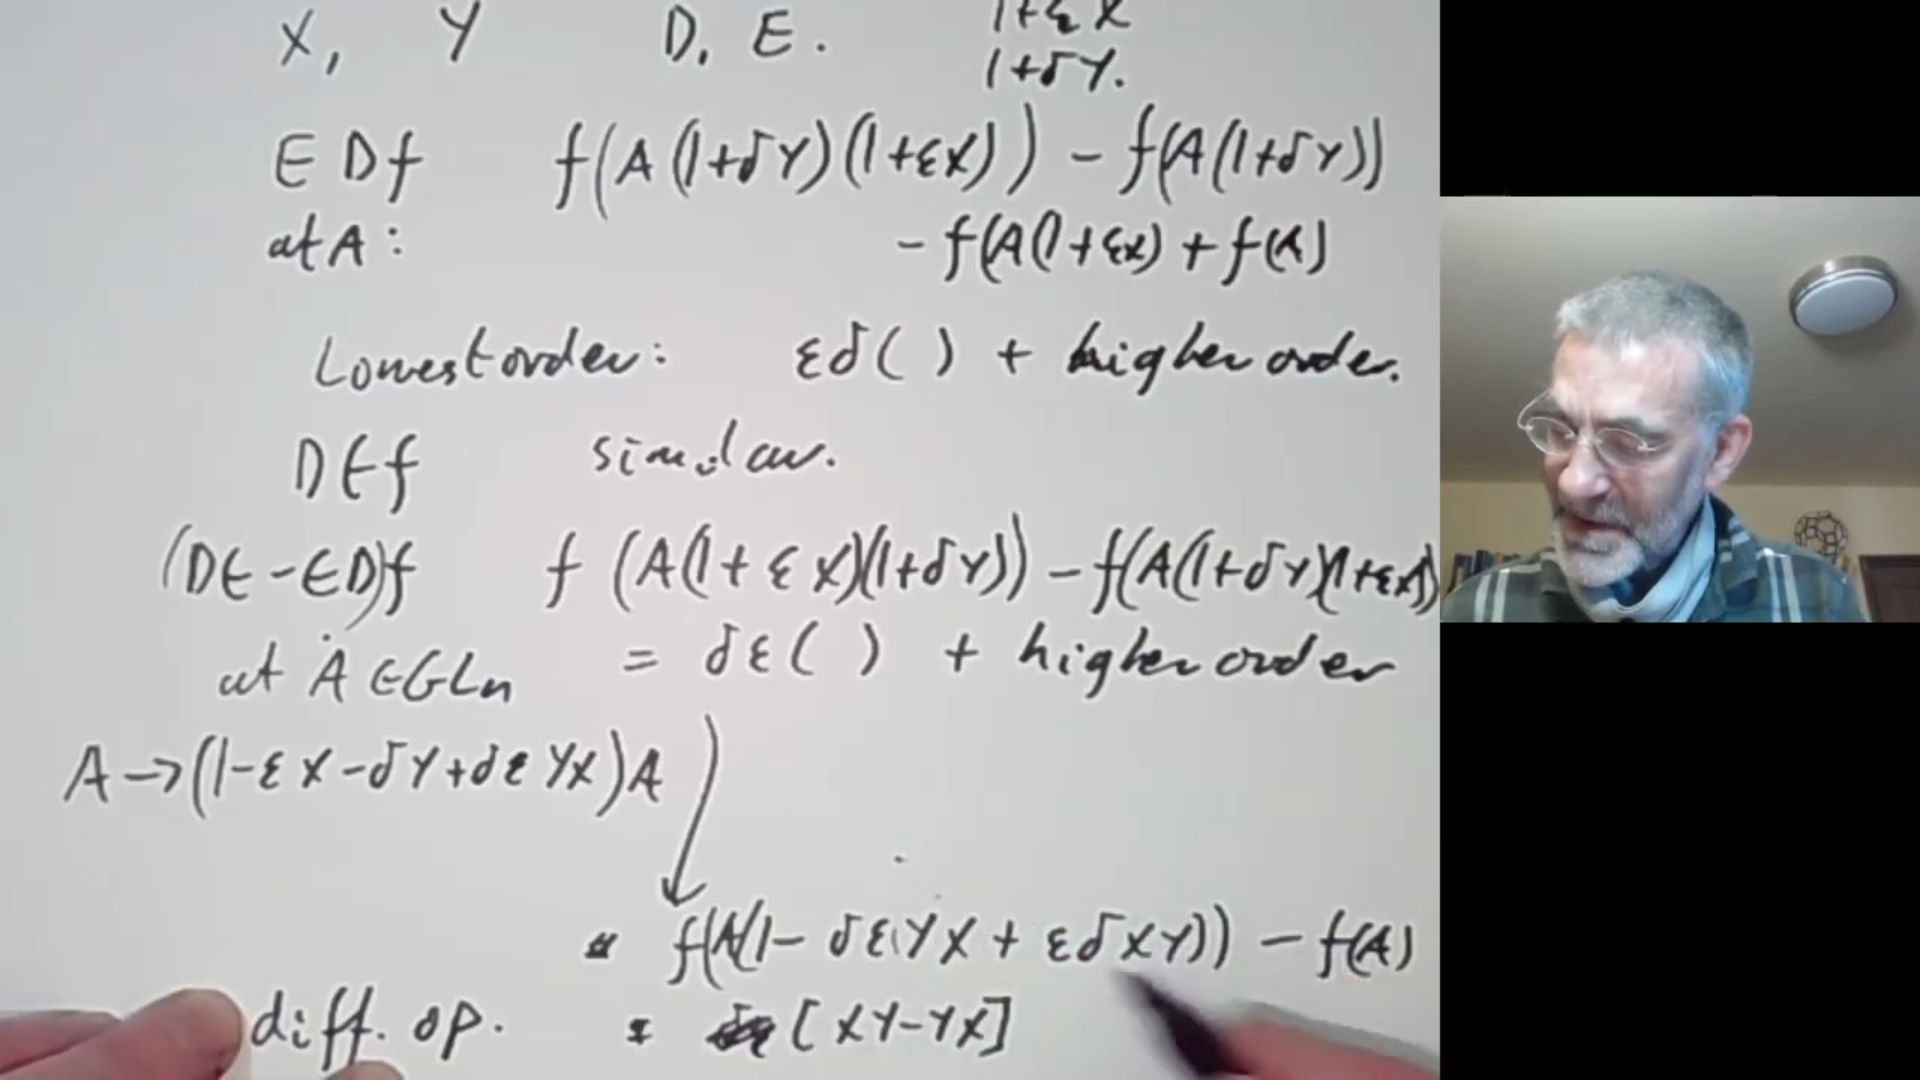 X, Y D, E. 1+εX
1+δY.
EDf f(A(1+δY)(1+εX)) - f(A(1+δY))
at A: - f(A(1+εX) + f(A)
Lowest order: εδ( ) + higher order.
DEf similar.
(DE-ED)f f(A(1+εX)(1+δY)) - f(A(1+δY)(1+εX))
at A ∈ GLn = δε( ) + higher order
A → (1-εX-δY+δεYX)A
= f(A(1-δεYX + εδXY)) - f(A)
diff. op. = [XY-YX]